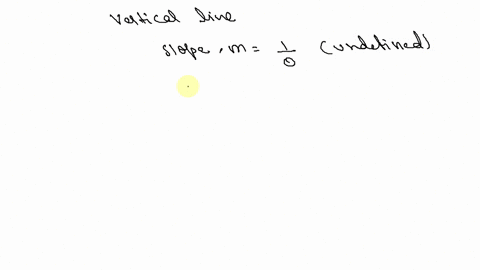 vertical line
slope, m = 1/0 (undefined)